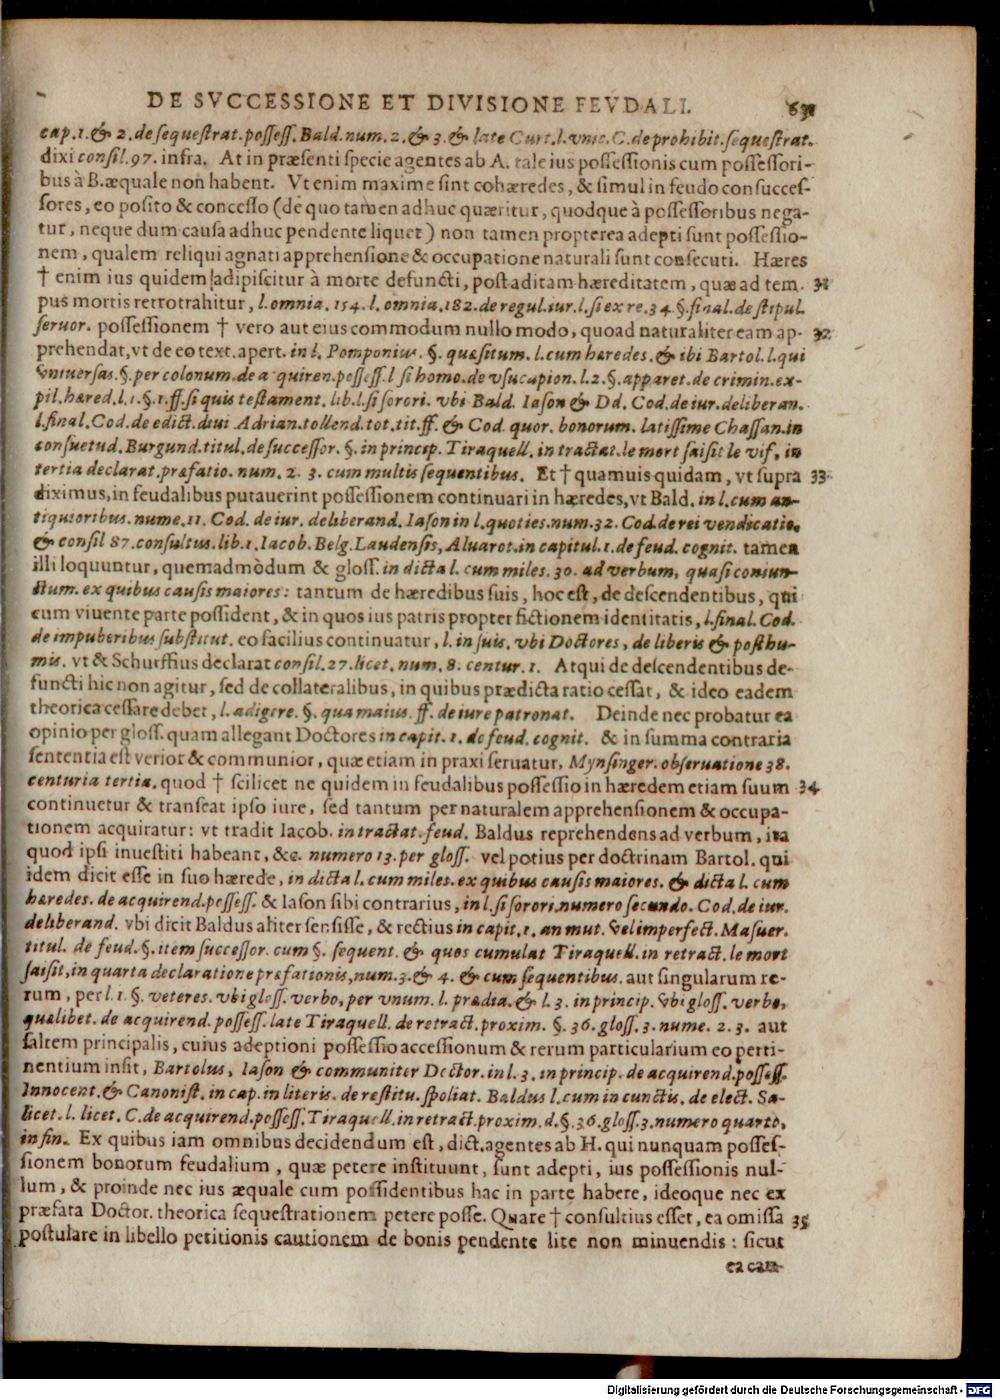 DE SVCCESSIONE ET DIVISIONE FEVDALI. 631
cap. 1. & 2. de sequestrat. possess. Bald. num. 2. & 3. & late Curt. l. vnic. C. de prohibit. sequestrat.
dixi consil. 97. infra. At in præsenti specie agentes ab A. tale ius possessionis cum possessori-
bus à B. æquale non habent. Vt enim maxime sint cohæredes, & simul in feudo consucces-
sores, eo posito & concesso (de quo tamen adhuc quæritur, quodque à possessoribus nega-
tur, neque dum causa adhuc pendente liquet) non tamen propterea adepti sunt possessio-
nem, qualem reliqui agnati apprehensione & occupatione naturali sunt consecuti. Hæres
† enim ius quidem adipiscitur à morte defuncti, post aditam hæreditatem, quæ ad tem- 31
pus mortis retrotrahitur, l. omnia. 154. l. omnia. 182. de regul. iur. l. si ex re. 34. §. final. de stipul.
seruor. possessionem † vero aut eius commodum nullo modo, quoad naturaliter eam ap- 32
prehendat, vt de eo text. apert. in l. Pomponius. §. quæsitum. l. cum hæredes. & ibi Bartol. l. qui
vniuersas. §. per colonum. de acquiren. possess. l si homo. de vsucapion. l. 2. §. apparet. de crimin. ex-
pil. hæred. l. 1. §. 1. ff. si quis testament. lib. l. si sorori. vbi Bald. Iason & Dd. Cod. de iur. deliberan.
l. final. Cod. de edict. diui Adrian. tollend. tot. tit. ff. & Cod. quor. bonorum. latissime Chassan. in
consuetud. Burgund. titul. de successor. §. in princip. Tiraquell. in tractat. le mort saisit le vif, in
tertia declarat. præfatio. num. 2. 3. cum multis sequentibus. Et † quamuis quidam, vt supra 33
diximus, in feudalibus putauerint possessionem continuari in hæredes, vt Bald. in l. cum an-
tiquioribus. nume. 11. Cod. de iur. deliberand. Iason in l. quoties. num. 32. Cod. de rei vendicatio.
& consil 87. consultus. lib. 1. Iacob. Belg. Laudensis, Aluarot. in capitul. 1. de feud. cognit. tamen
illi loquuntur, quemadmòdum & gloss. in dicta l. cum miles. 30. ad verbum, quasi coniun-
ctum. ex quibus causis maiores: tantum de hæredibus suis, hoc est, de descendentibus, qui
cum viuente parte possident, & in quos ius patris propter fictionem identitatis, l. final. Cod.
de impuberibus substitut. eo facilius continuatur, l. in suis. vbi Doctores, de liberis & posthu-
mis. vt & Schurffius declarat consil. 27. licet. num. 8. centur. 1. Atqui de descendentibus de-
functi hic non agitur, sed de collateralibus, in quibus prædicta ratio cessat, & ideo eadem
theorica cessare debet, l. adigere. §. quamuis. ff. de iure patronat. Deinde nec probatur ea
opinio per gloss. quam allegant Doctores in capit. 1. de feud. cognit. & in summa contraria
sententia est verior & communior, quæ etiam in praxi seruatur, Mynsinger. obseruatione 38.
centuria tertia. quod † scilicet ne quidem in feudalibus possessio in hæredem etiam suum 34
continuetur & transeat ipso iure, sed tantum per naturalem apprehensionem & occupa-
tionem acquiratur: vt tradit Iacob. in tractat. feud. Baldus reprehendens ad verbum, ita
quod ipsi inuestiti habeant, &c. numero 13. per gloss. vel potius per doctrinam Bartol. qui
idem dicit esse in suo hærede, in dicta l. cum miles. ex quibus causis maiores. & dicta l. cum
hæredes. de acquirend. possess. & Iason sibi contrarius, in l. si sorori. numero secundo. Cod. de iur.
deliberand. vbi dicit Baldus aliter sensisse, & rectius in capit. 1. an mut. vel imperfect. Masuer.
titul. de feud. §. item successor. cum §. sequent. & quos cumulat Tiraquell. in retract. le mort
saisit, in quarta declaratione præfationis, num. 3. & 4. & cum sequentibus. aut singularum re-
rum, per l. 1. §. veteres. vbi gloss. verbo, per vnum. l. prædia. & l. 3. in princip. vbi gloss. verbo,
qualibet. de acquirend. possess. late Tiraquell. de retract. proxim. §. 36. gloss. 3. nume. 2. 3. aut
saltem principalis, cuius adeptioni possessio accessionum & rerum particularium eo perti-
nentium insit, Bartolus, Iason & communiter Doctor. in l. 3. in princip. de acquirend. possess.
Innocent. & Canonist. in cap. in literis. de restitu. spoliat. Baldus l. cum in cunctis. de elect. Sa-
licet. l. licet. C. de acquirend. possess. Tiraquell. in retract. proxim. d. §. 36. gloss. 3. numero quarto,
in fin. Ex quibus iam omnibus decidendum est, dict. agentes ab H. qui nunquam posses-
sionem bonorum feudalium, quæ petere instituunt, sunt adepti, ius possessionis nul-
lum, & proinde nec ius æquale cum possidentibus hac in parte habere, ideoque nec ex
præfata Doctor. theorica sequestrationem petere posse. Quare † consultius esset, ea omissa 35
postulare in libello petitionis cautionem de bonis pendente lite non minuendis: sicut
ea cau-
Digitalisierung gefördert durch die Deutsche Forschungsgemeinschaft - DFG